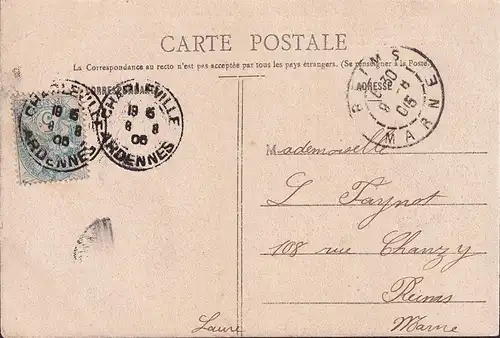 CARTE POSTALE
La Correspondance au recto n'est pas acceptée par tous les pays étrangers. (Se renseigner à la Poste.)
CORRESPONDANCE
ADRESSE
CHARLEVILLE
19 15
8 8
05
ARDENNES
CHARLEVILLE
19 15
8 8
05
ARDENNES
REIMS
MARNE
Mademoiselle
L Faynot
108 rue Chanzy
Reims
Marne
Laure